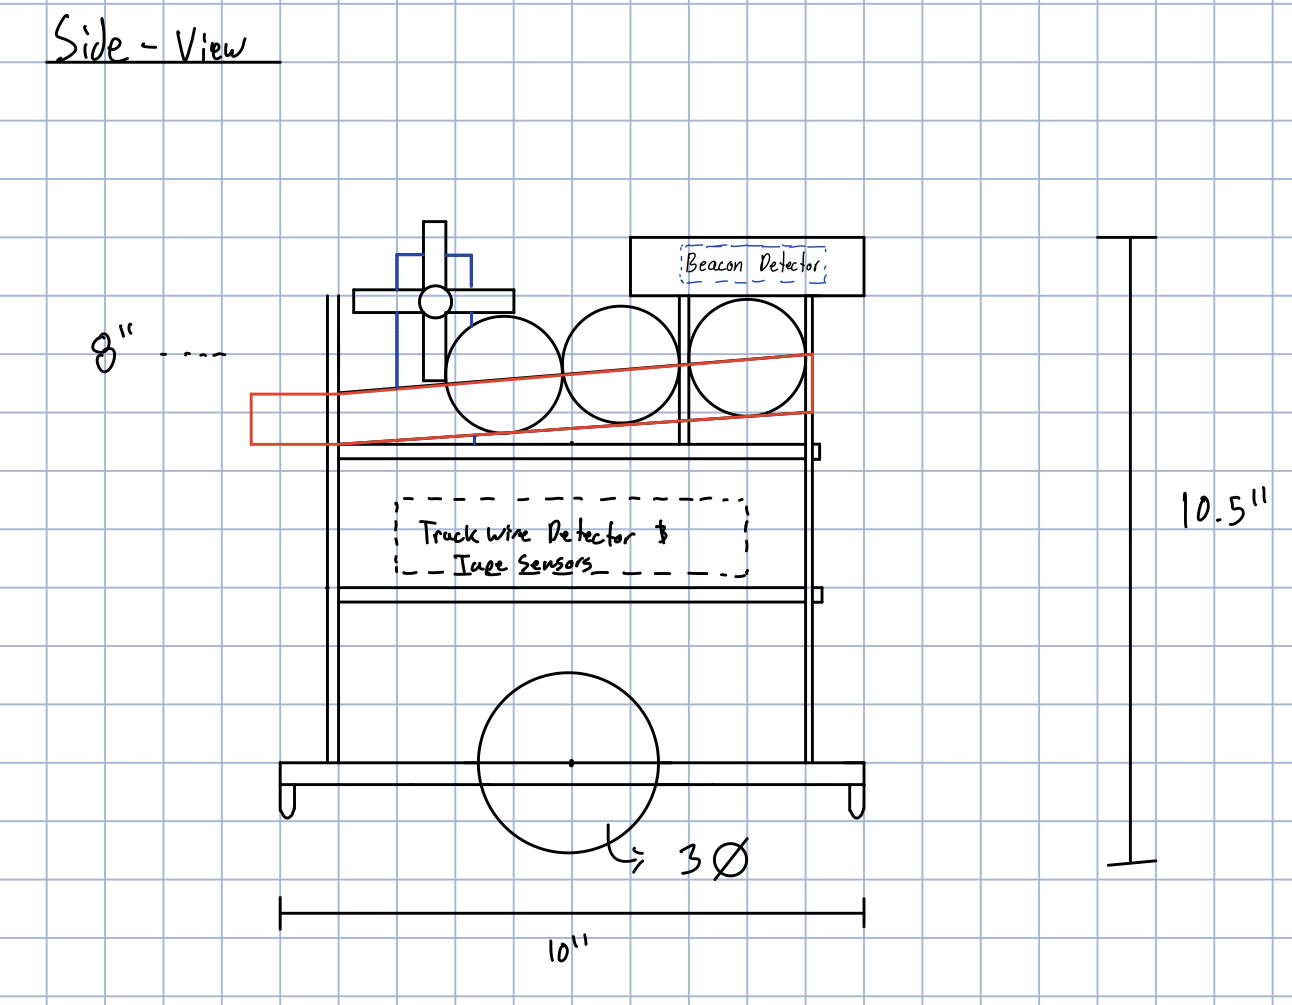 Side - View
Beacon Detector
8"
10.5"
Track Wire Detector &
Tape Sensors
3 Ø
10"